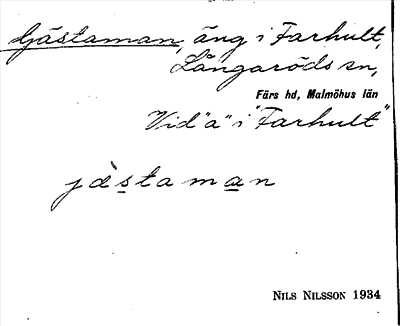 Gästaman, äng i Farhult,
Långaröds sn,
Färs hd, Malmöhus län
Vid "a" i "Farhult"
jàstaman
NILS NILSSON 1934